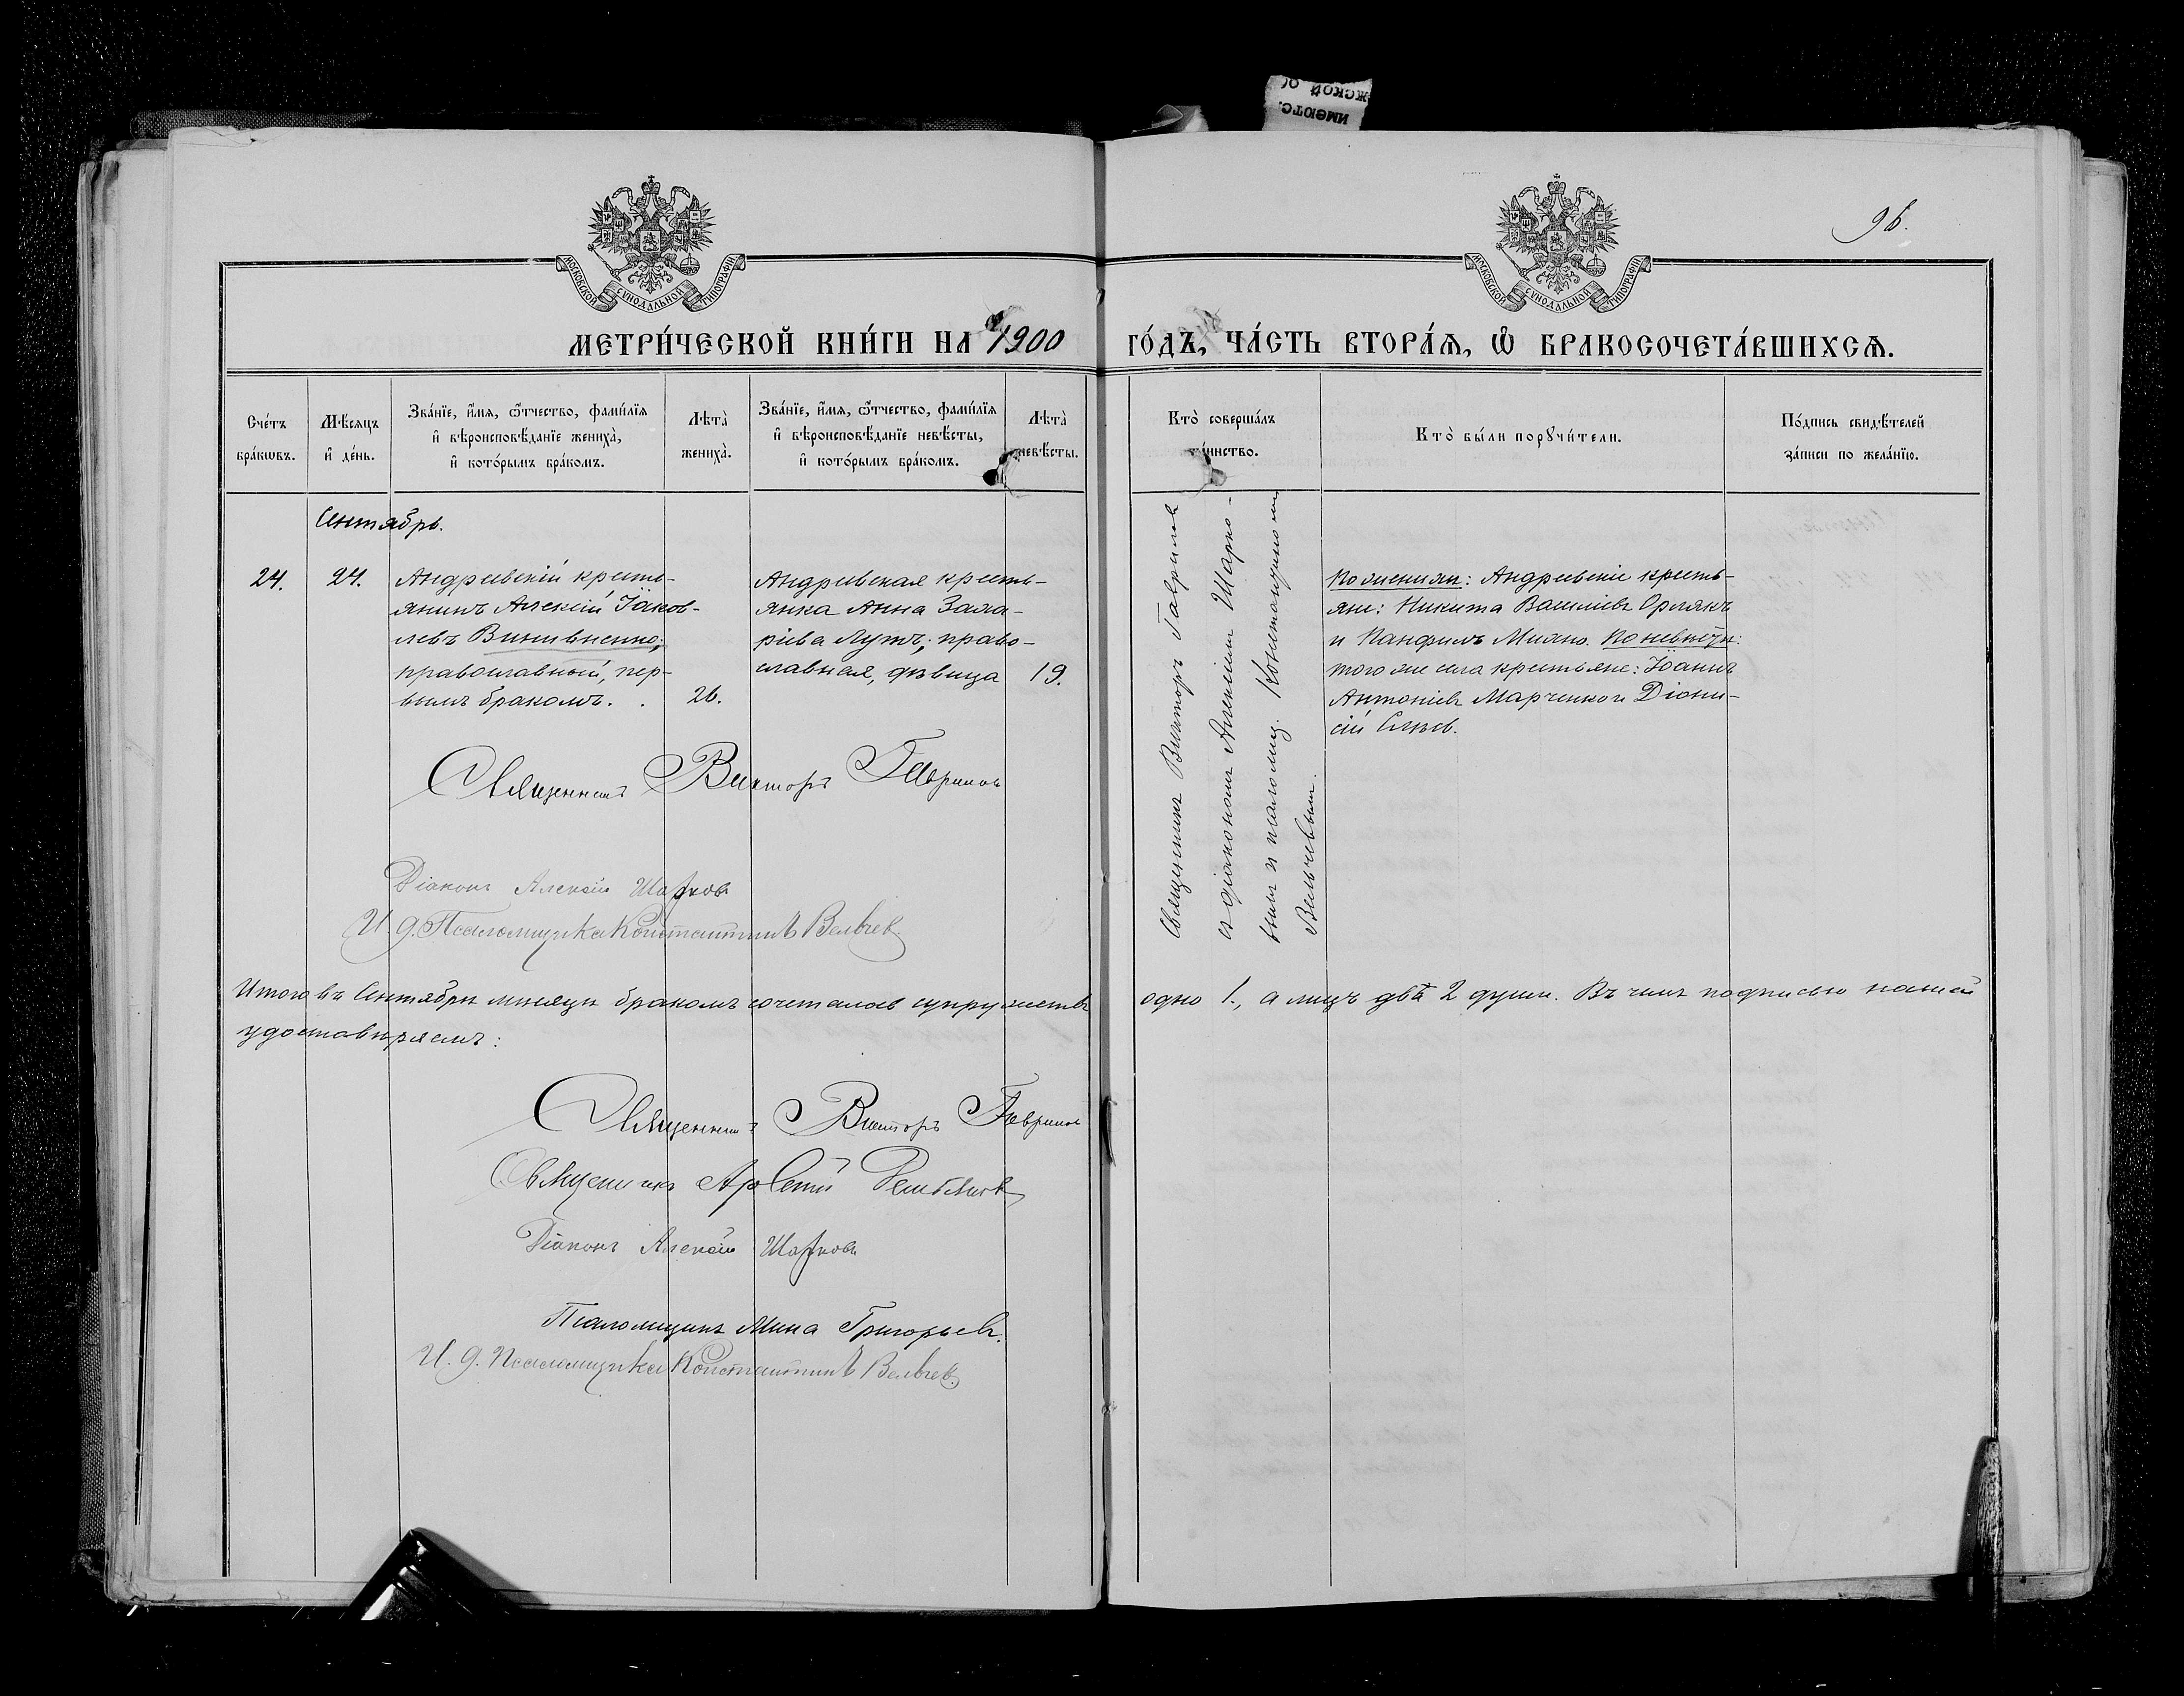 96.
МОСКОВСКОЙ СѴНОДАЛЬНОЙ ТИПОГРАФІИ
МОСКОВСКОЙ СѴНОДАЛЬНОЙ ТИПОГРАФІИ
МЕТРИ́ЧЕСКОЙ КНИ́ГИ НА 1900 ГО́ДЪ, ЧА́СТЬ ВТОРА́Ѧ, Ѽ БРАКОСОЧЕТА́ВШИХСѦ.
Сче́тъ
бра́кѡвъ.
Мѣ́сяцъ
и҆ де́нь.
Зва́нїе, и҆́мѧ, ѻ҆́тчество, фами́лїѧ
и҆ вѣроисповѣ́данїе жениха̀,
и҆ кото́рымъ бра́комъ.
Лѣта̀
жениха̀.
Зва́нїе, и҆́мѧ, ѻ҆́тчество, фами́лїѧ
и҆ вѣроисповѣ́данїе невѣ́сты,
и҆ кото́рымъ бра́комъ.
Лѣта̀
невѣ́сты.
Кто̀ соверша́лъ
та́инство.
Кто̀ бы́ли порꙋчи́тели.
По́дпись свидѣ́телей
за́писи по жела́нїю.
Сентябрь.
24.
24.
Андреевскій кресть-
янинъ Алексій Іаков-
левъ Винивненко;
православный, пер-
вымъ бракомъ.
26.
Андреевская кресть-
янка Анна Заха-
ріева Лутъ; право-
славная, дѣвица
19.
Священникъ Викторъ Гавриловъ
съ діакономъ Алексіемъ Шарко-
вымъ и псаломщ. Константиномъ
Вельчевымъ.
По женихѣ: Андреевскіе кресть-
яне: Никита Василіевъ Орлякъ
и Панфилъ Мияно. По невѣстѣ:
того же села крестьяне: Іоаннъ
Антоніевъ Марченко и Діони-
сій
Священникъ Викторъ Гавриловъ
Діаконъ Алексій Шарковъ
И. д. Псаломщика Константинъ Вельчев.
Итого въ Сентябрѣ мѣсяцѣ бракомъ сочеталось супружествъ одно 1., а лицъ двѣ 2 души. Въ чемъ подписью нашей
удостовѣряемъ:
Священникъ Викторъ Гавриловъ
Священникъ Арсеній
Діаконъ Алексій Шарковъ
Псаломщикъ Мина Григорьевъ.
И. д. Псаломщика Константинъ Вельчев.